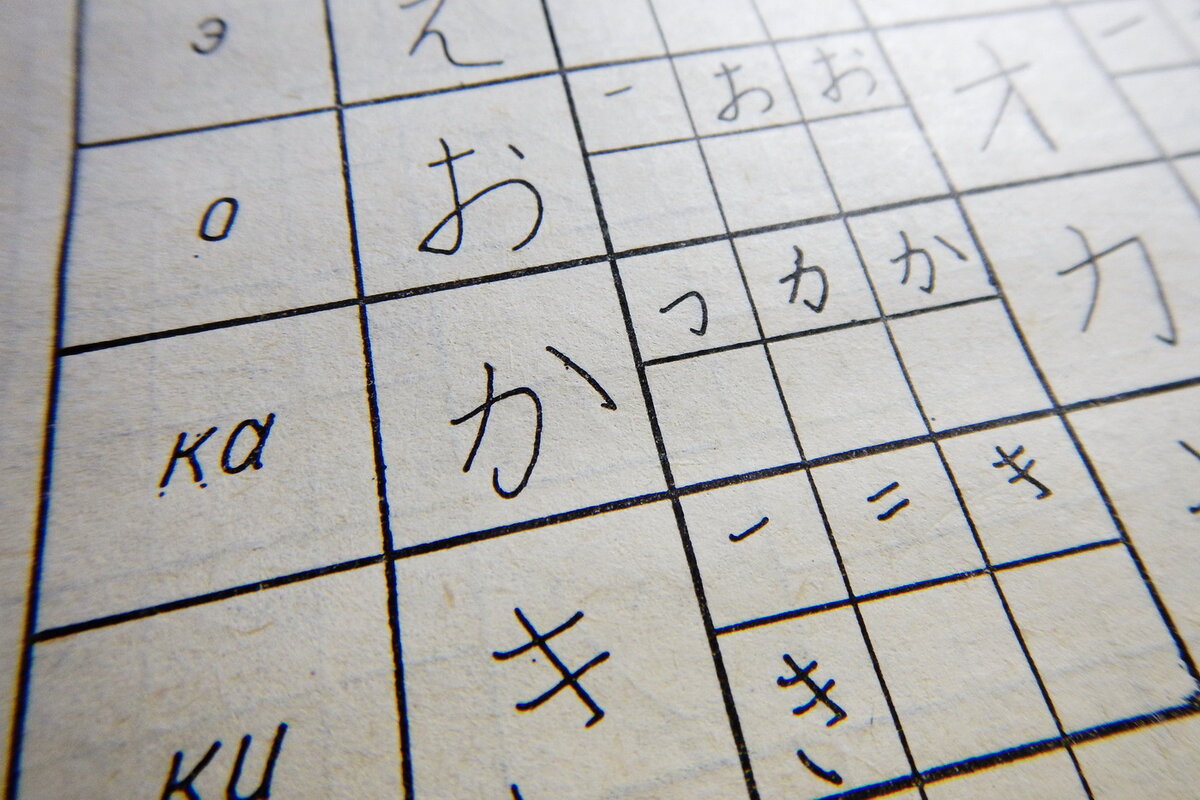 э え
о お 一 お お オ 一
ка か つ カ か カ
ки き 一 二 き き